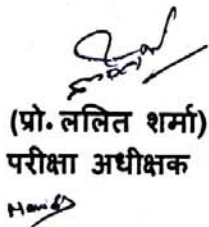 (प्रो. ललित शर्मा)
परीक्षा अधीक्षक